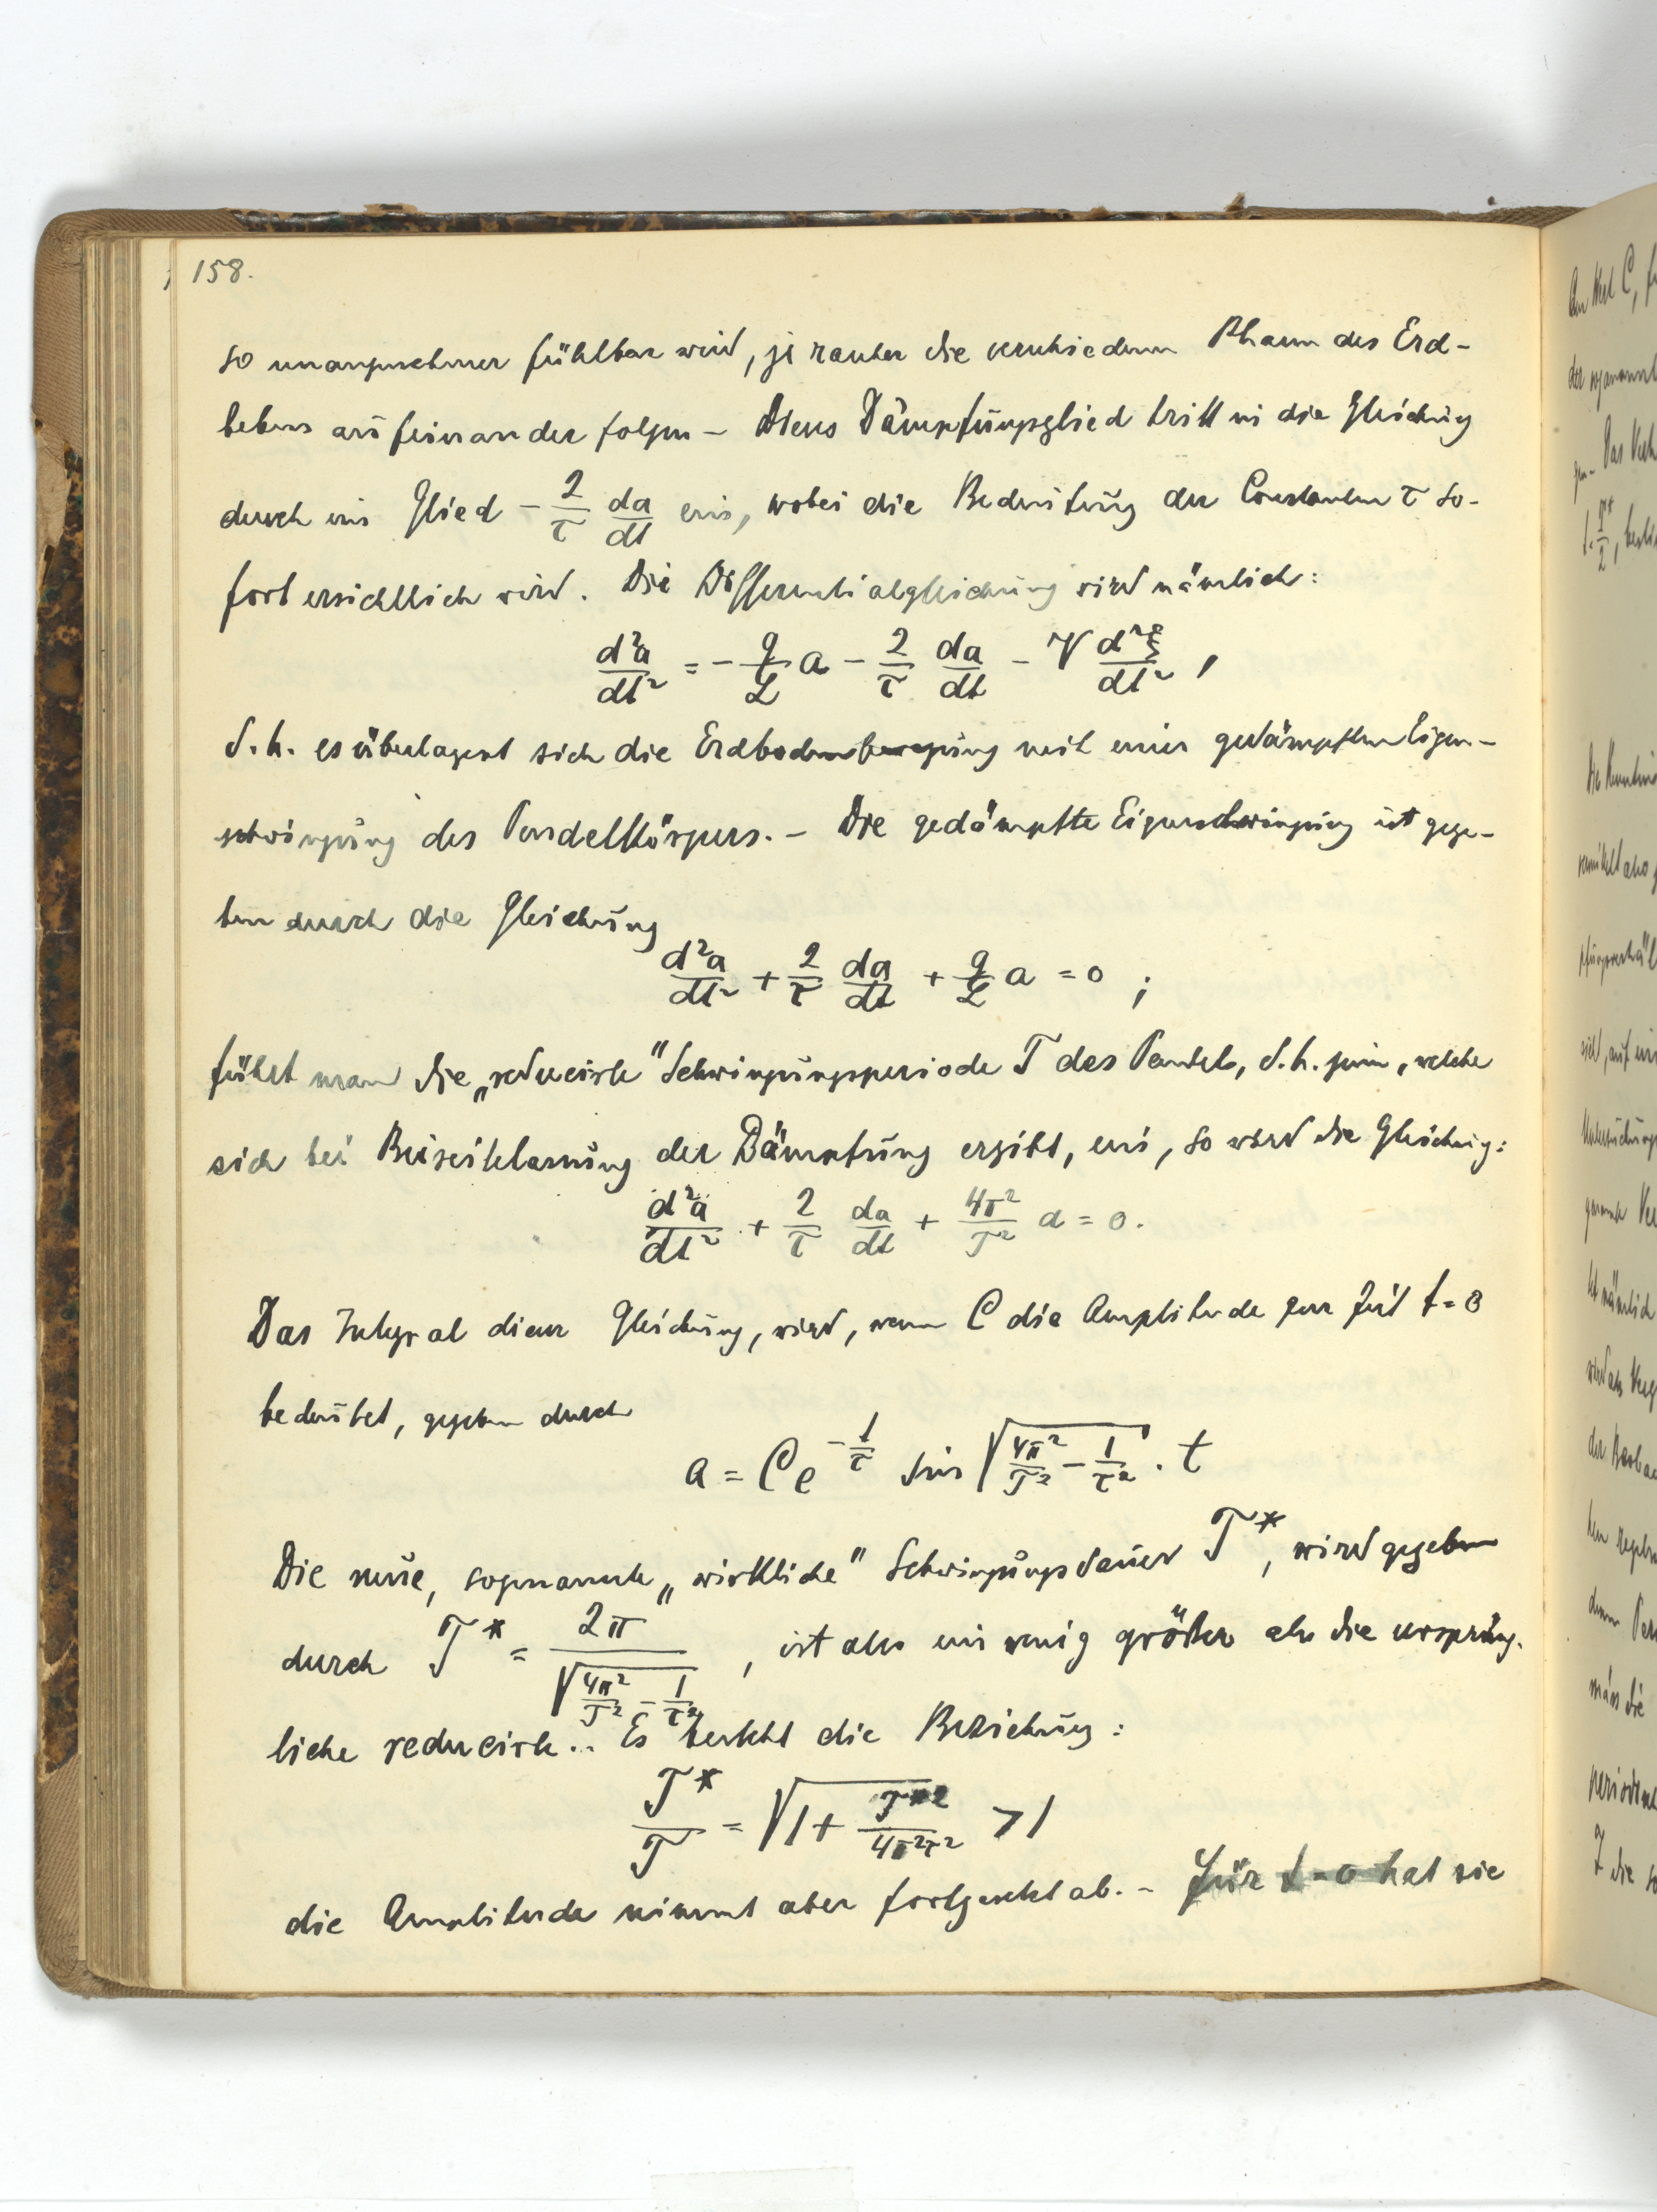 158.
so unangenehmer fühlbar wird, je rascher die verschiedenen Phasen des Erd-
bebens aufeinander folgen – Dieses Dämpfungsglied tritt in die Gleichung
durch ein Glied – 2/τ da/dt ein, wobei die Bedeutung der Constanten τ so-
fort ersichtlich wird. Die Differentialgleichung wird nämlich:
d²a/dt² = – g/L a – 2/τ da/dt – V d²ξ/dt² ,
d.h. es überlagert sich die Erdbodenbewegung mit einer gedämpften Eigen-
schwingung des Pendelkörpers. – Die gedämpfte Eigenschwingung ist gege-
ben durch die Gleichung
d²a/dt² + 2/τ da/dt + g/L a = 0 ;
führt man die „reducirte" Schwingungsperiode T des Pendels, d.h. jene, welche
sich bei Beiseitelassung der Dämpfung ergibt, ein, so wird die Gleichung:
d²a/dt² + 2/τ da/dt + 4π²/T² a = 0.
Das Integral dieser Gleichung, wird, wenn C die Amplitude zur Zeit t=0
bedeutet, gegeben durch
a = C e^(–t/τ) sin √(4π²/T² – 1/τ²) . t
Die neue, sogenannte „wirkliche" Schwingungsdauer T*, wird gegeben
durch T* = 2π/√(4π²/T² – 1/τ²) , ist also ein wenig größer als die ursprüng-
liche reducirte.. Es besteht die Beziehung:
T*/T = √(1 + T*²/4π²τ²) > 1
die Amplitude nimmt aber fortgesetzt ab. – Für t=0 hat sie